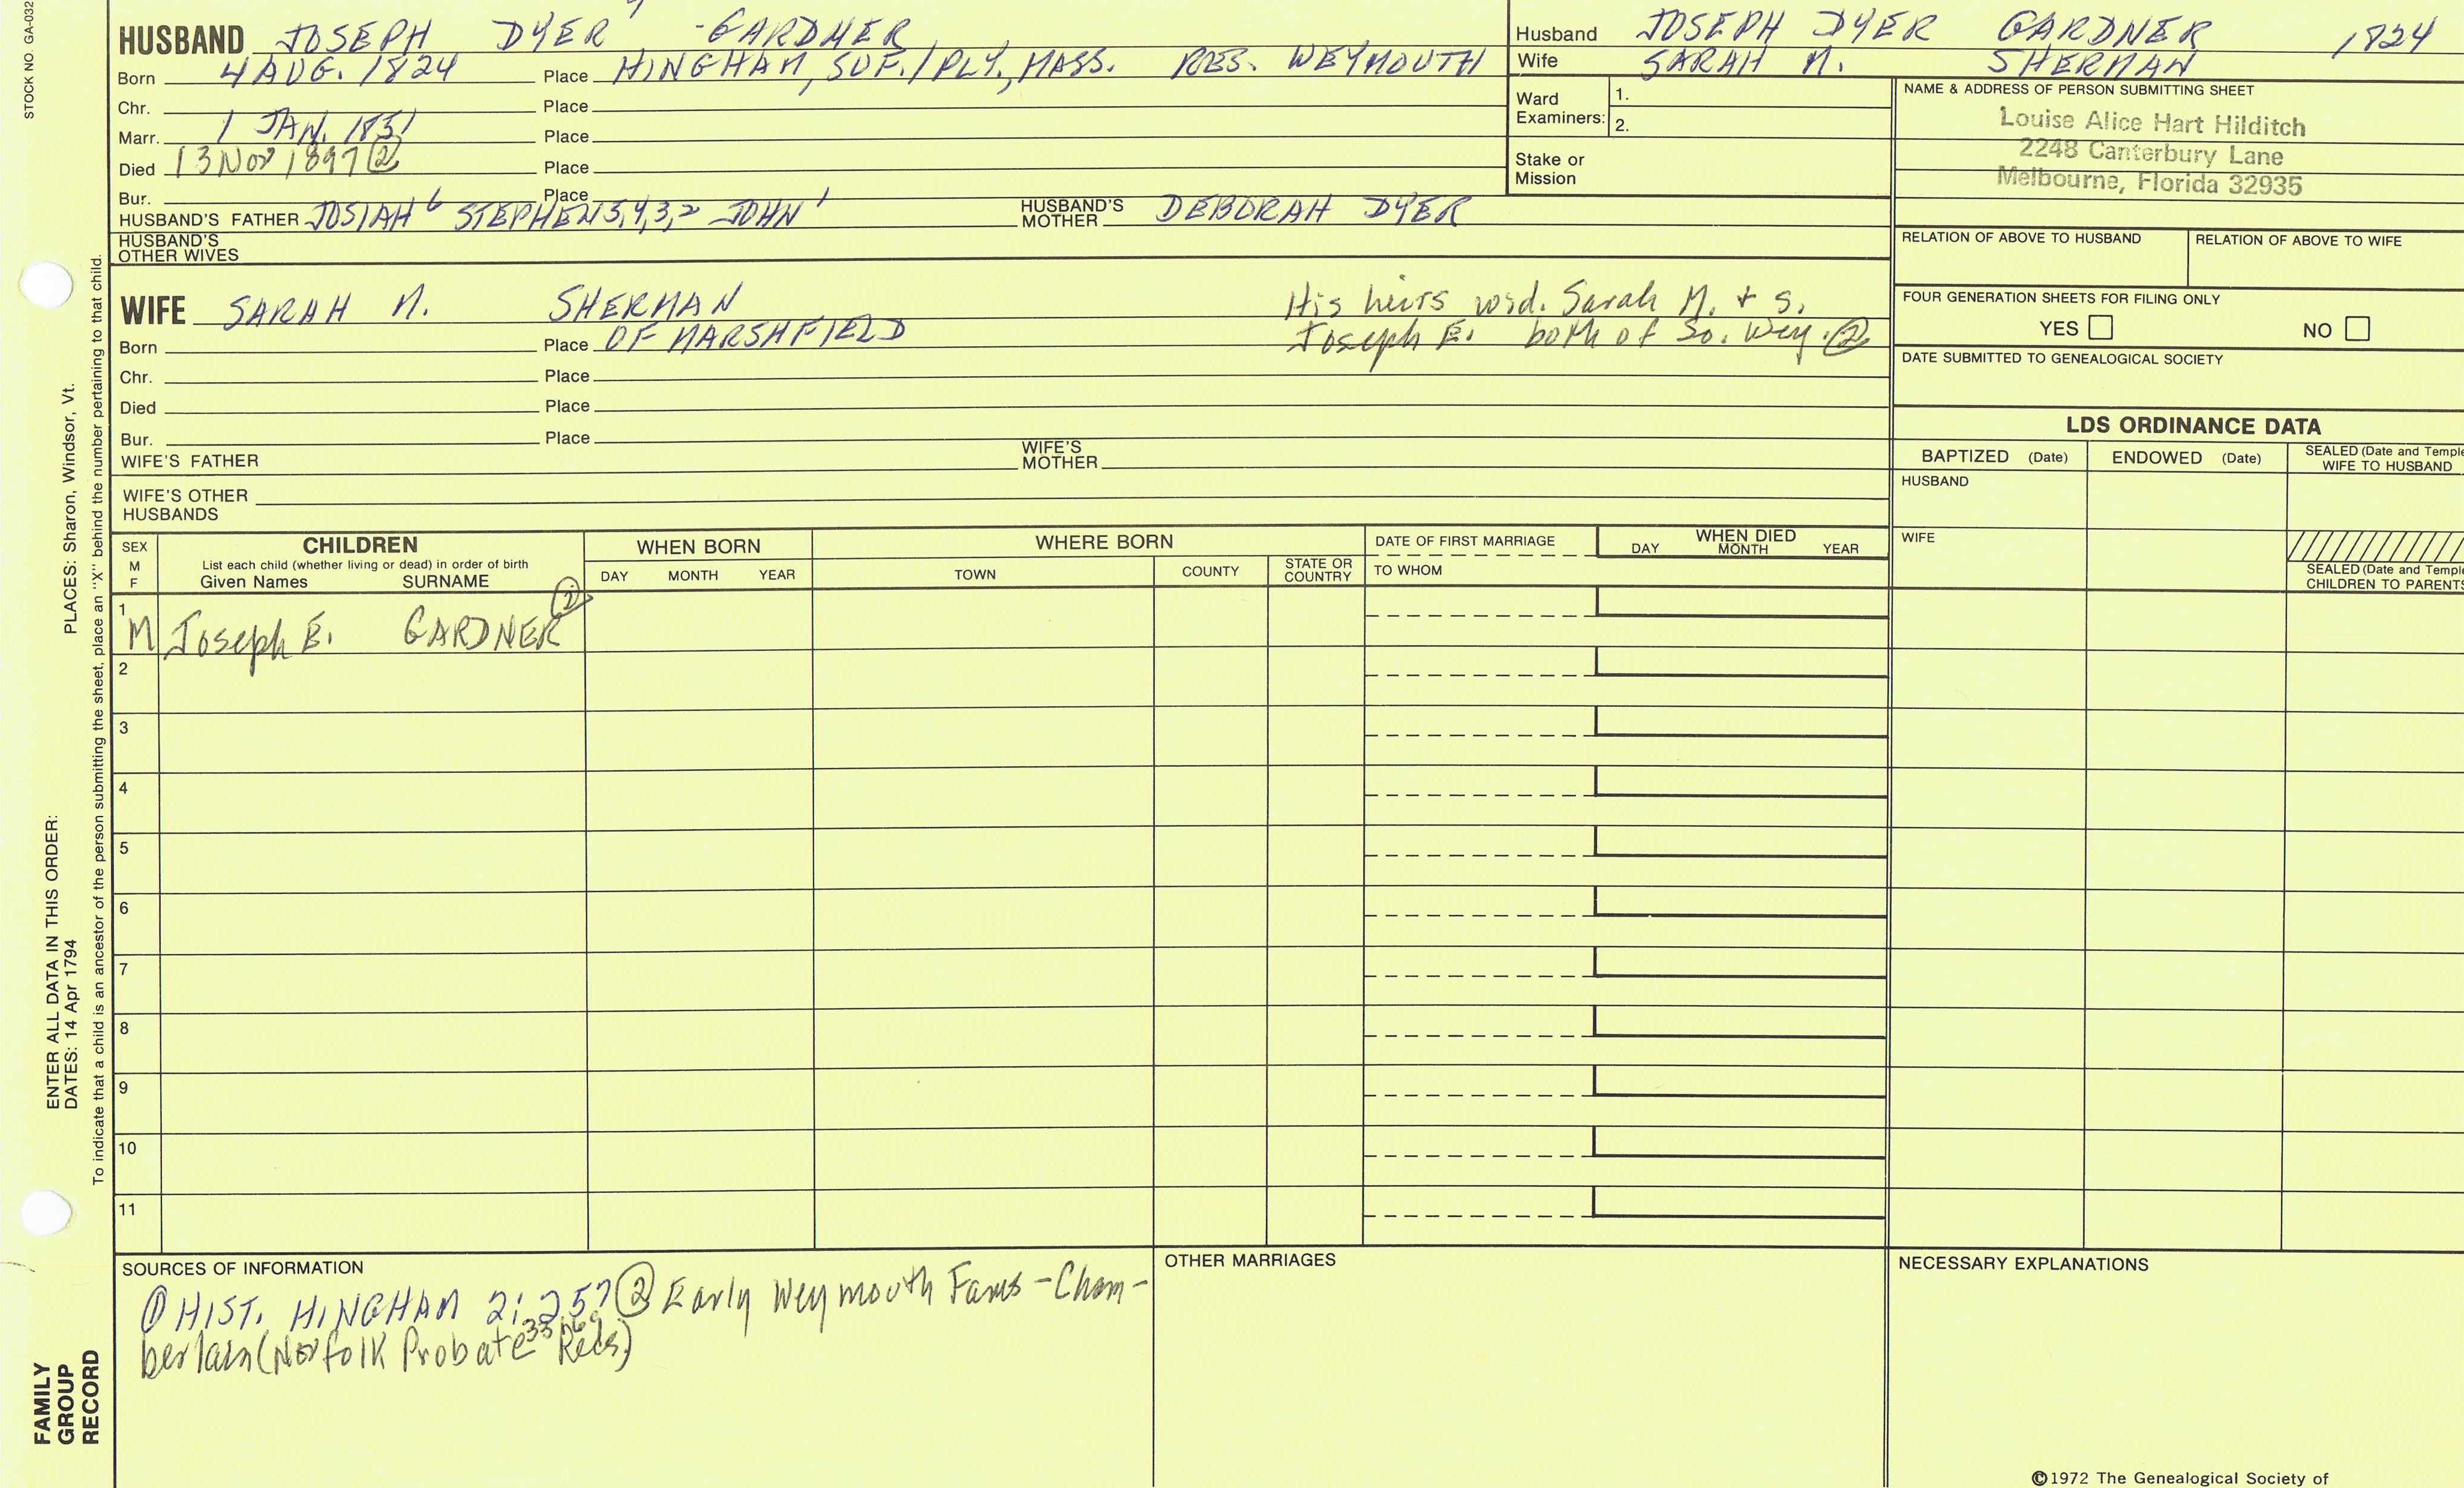 STOCK NO. GA-032
HUSBAND JOSEPH DYER 7 -GARDNER
Born 4 AUG. 1824 Place HINGHAM, SUF./PLY., MASS. RES. WEYMOUTH
Chr. Place
Marr. 1 JAN. 1851 Place
Died 13 Nov 1897 ② Place
Bur. Place
HUSBAND'S FATHER JOSIAH 6 STEPHEN 5,4,3,2 JOHN 1 HUSBAND'S MOTHER DEBORAH DYER
HUSBAND'S OTHER WIVES
Husband JOSEPH DYER GARDNER 1824
Wife SARAH M. SHERMAN
Ward Examiners: 1.
2.
Stake or Mission
NAME & ADDRESS OF PERSON SUBMITTING SHEET
Louise Alice Hart Hilditch
2248 Canterbury Lane
Melbourne, Florida 32935
RELATION OF ABOVE TO HUSBAND RELATION OF ABOVE TO WIFE
FOUR GENERATION SHEETS FOR FILING ONLY
YES NO
DATE SUBMITTED TO GENEALOGICAL SOCIETY
WIFE SARAH M. SHERMAN
Born Place OF MARSHFIELD
His heirs wid. Sarah M. + s.
Joseph E. both of So. Wey. ②
Chr. Place
Died Place
Bur. Place
WIFE'S FATHER WIFE'S MOTHER
WIFE'S OTHER HUSBANDS
LDS ORDINANCE DATA
BAPTIZED (Date) ENDOWED (Date) SEALED (Date and Temple
WIFE TO HUSBAND
HUSBAND
WIFE
SEALED (Date and Temple
CHILDREN TO PARENTS
SEX
M
F
CHILDREN
List each child (whether living or dead) in order of birth
Given Names SURNAME
WHEN BORN
DAY MONTH YEAR
WHERE BORN
TOWN COUNTY STATE OR COUNTRY
DATE OF FIRST MARRIAGE
TO WHOM
WHEN DIED
DAY MONTH YEAR
1 M Joseph E. GARDNER ②
2
3
4
5
6
7
8
9
10
11
SOURCES OF INFORMATION
① HIST. HINGHAM 2:257 ② Early Weymouth Fams -Cham-
berlain (Norfolk Probate Recs)
OTHER MARRIAGES
NECESSARY EXPLANATIONS
©1972 The Genealogical Society of
PLACES: Sharon, Windsor, Vt.
ENTER ALL DATA IN THIS ORDER:
DATES: 14 Apr 1794
To indicate that a child is an ancestor of the person submitting the sheet, place an "X" behind the number pertaining to that child.
FAMILY
GROUP
RECORD